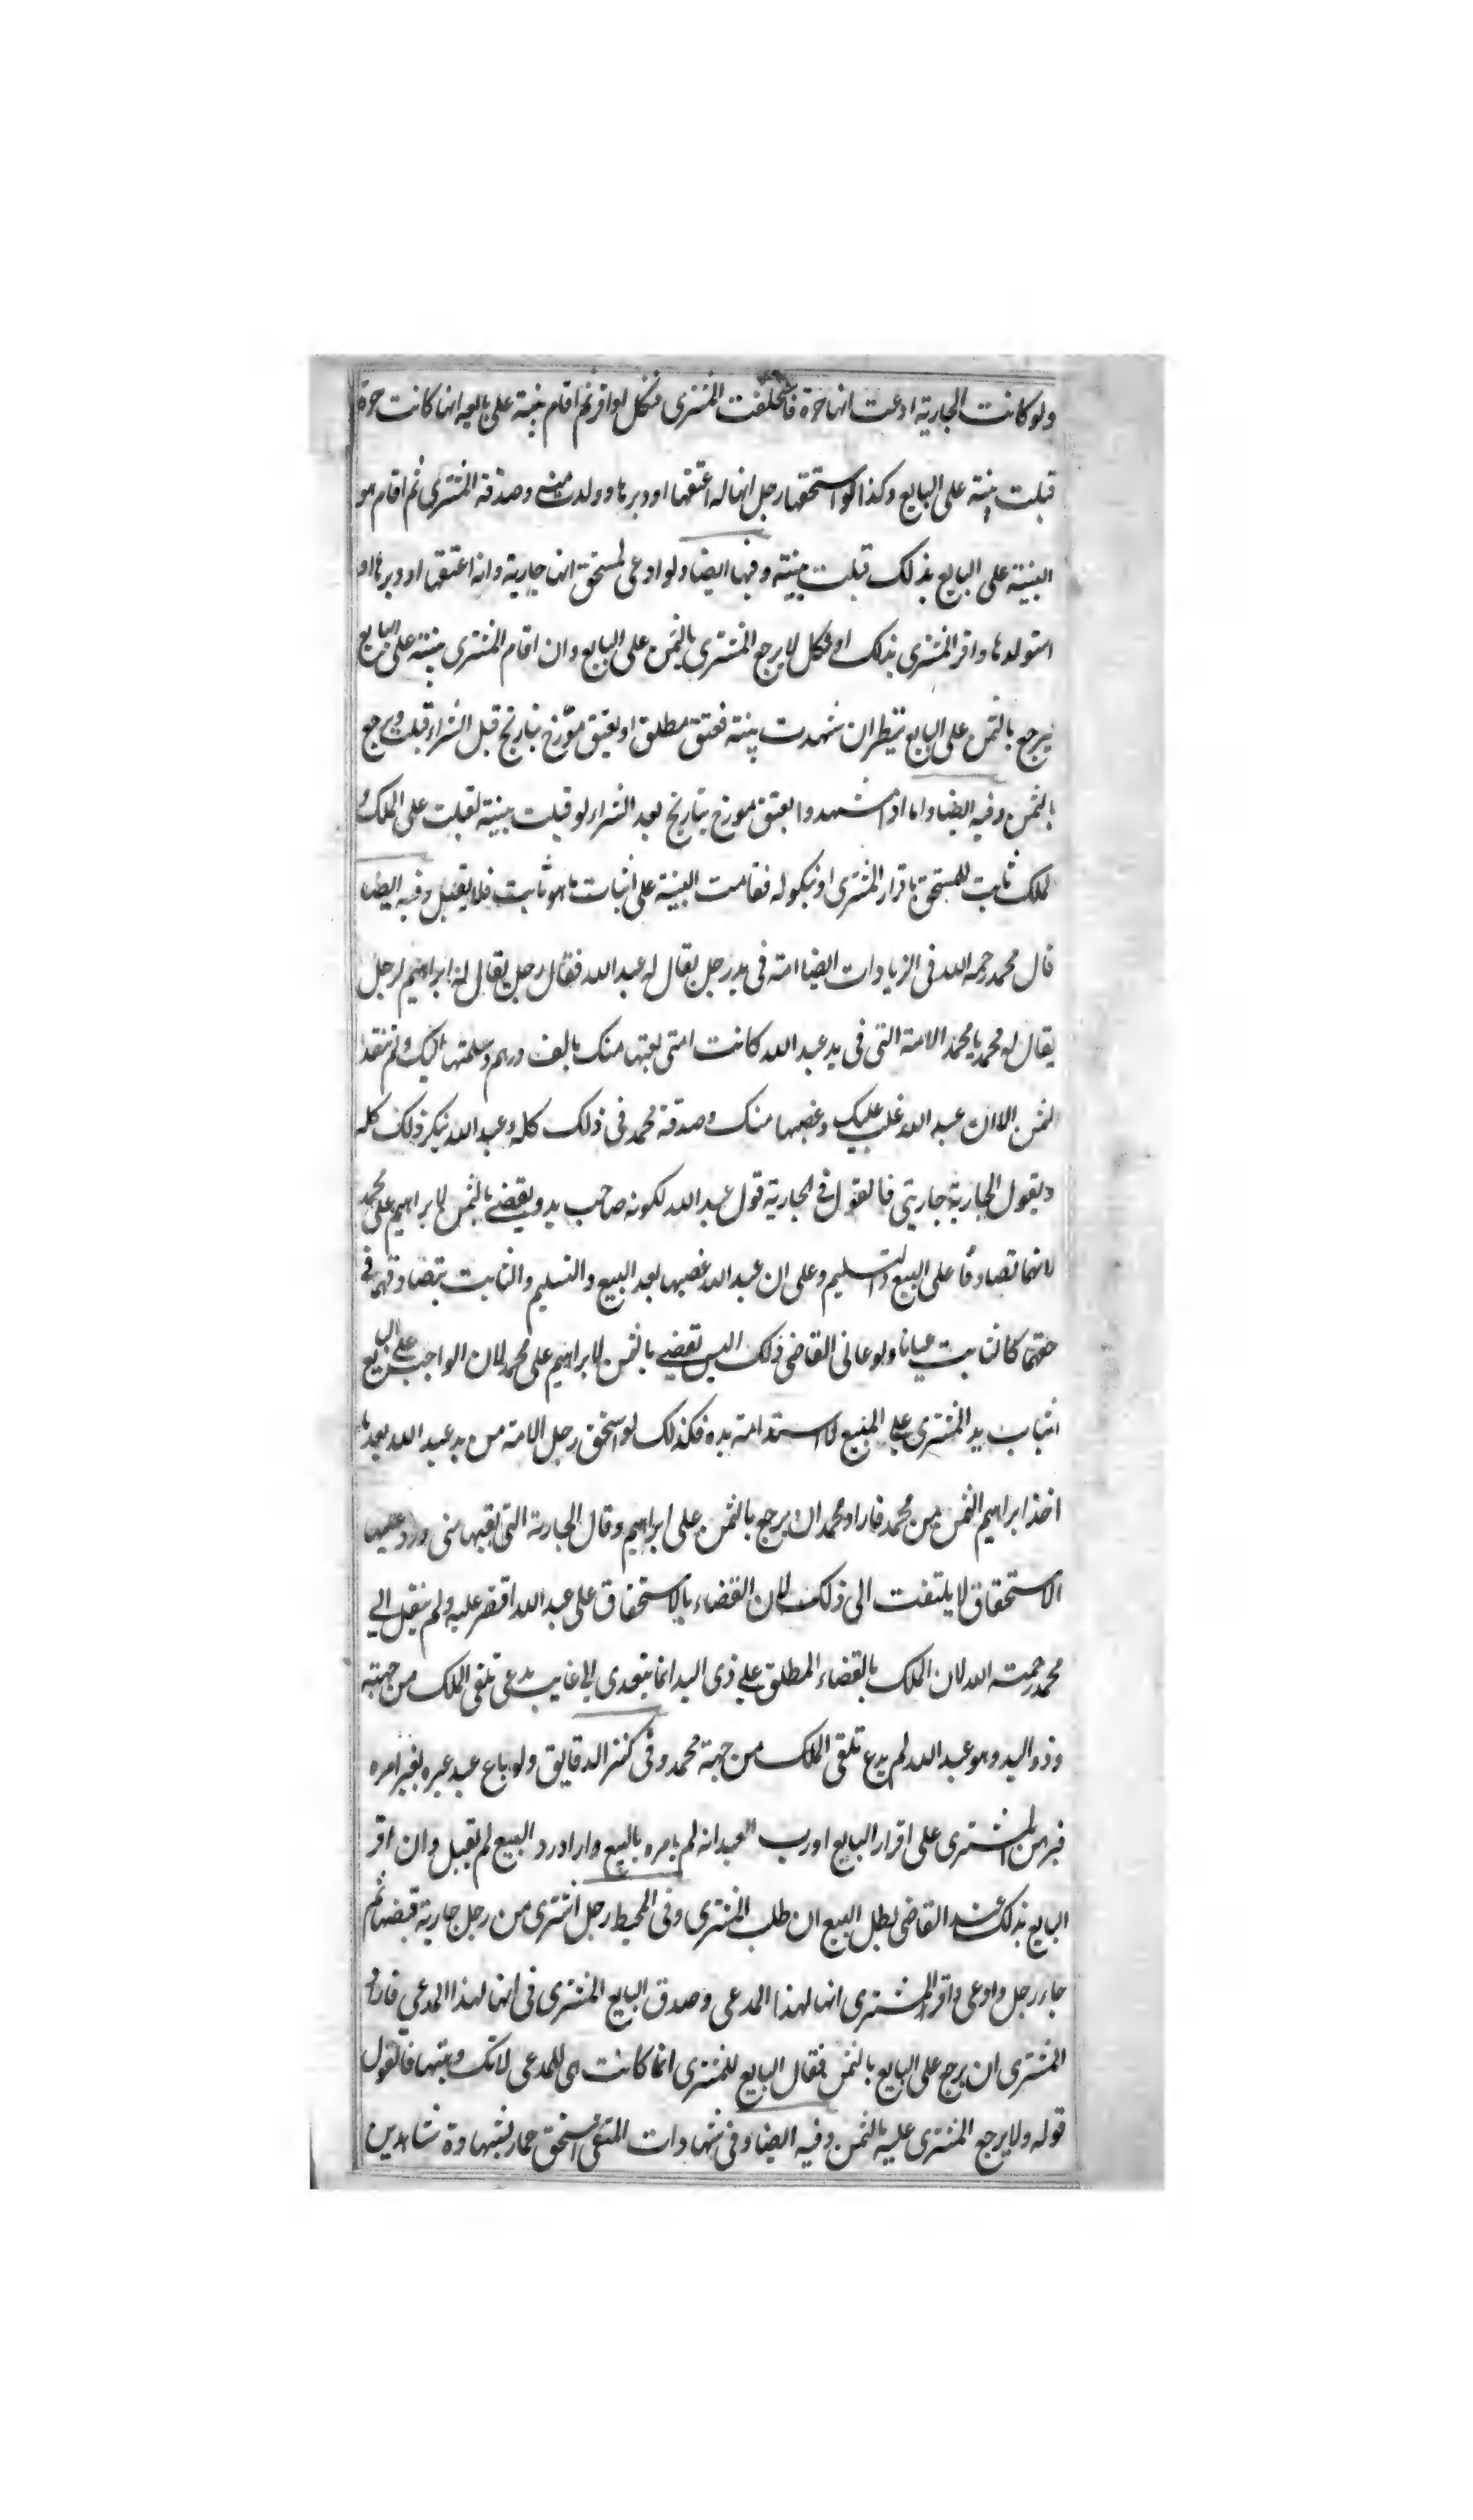 ولو كانت الجارية ادعت انها حرة فاستحلفت المشترى فنكل او اقر ثم اقام بينة على بايعه انها كانت حرة
قبلت بينة على البايع وكذا لو استحقها رجل انها له اعتقها او دبرها وولدت منه وصدقه المشترى ثم اقام هو
البينة على البايع بذلك قبلت بينته وفيها ايضا ولو ادعى المستحق انها جارية وانه اعتقها او دبرها او
استولدها واقر المشترى بذلك او نكل لا يرجع المشترى بالثمن على البايع وان اقام المشترى بينته على البايع
ليرجع بالثمن على البايع ينظر ان شهدت بينته بعتق مطلق او بعتق مؤرخ بتاريخ قبل الشراء قبلت ويرجع
بالثمن وفيه ايضا واما اذا شهدوا بعتق مورخ بتاريخ بعد الشراء لو قبلت بينة لقبلت على الملك و
الملك ثابت للمستحق باقرار المشترى او بنكوله فقامت البينة على اثبات ما هو ثابت فلا يقبل وفيه ايضا
قال محمد رحمه الله فى الزيادات ايضا امة فى يد رجل يقال له عبد الله فقال رجل يقال له ابراهيم لرجل
يقال له محمد يا محمد الامة التى فى يد عبد الله كانت امتى بعتها منك بالف درهم وسلمتها اليك ولم تنقد
الثمن الا ان عبد الله غلب عليك وغصبها منك وصدقه محمد فى ذلك كله وعبد الله ينكر ذلك كله
ويقول الجارية جاريتى فالقول فى الجارية قول عبد الله لكونه صاحب يد ويقضى بالثمن لابراهيم على محمد
لانهما تصادقا على البيع والتسليم وعلى ان عبد الله غصبها بعد البيع والتسليم والثابت بتصادقهما فى
حقهما كالثابت عيانا ولو عاين القاضى ذلك اليس يقضى بالثمن لابراهيم على محمد لان الواجب على البايع
اثبات يد المشترى على المبيع لا استدامة يده فكذلك لو استحق رجل الامة من يد عبد الله بعد ما
اخذ ابراهيم الثمن من محمد فاراد محمد ان يرجع بالثمن على ابراهيم وقال الجارية التى بعتها منى ورد عليها
الاستحقاق لا يلتفت الى ذلك لان القضاء بالاستحقاق على عبد الله اقتصر عليه ولم ينتقل الى
محمد رحمة الله لان الملك بالقضاء المطلق على ذى اليد انما يتعدى الى غايب يدعى تلقى الملك من جهته
وذو اليد وهو عبد الله لم يدع تلقى الملك من جهة محمد وفى كنز الدقايق ولو باع عبد غيره بغير امره
فبرهن المشترى على اقرار البايع او رب العبد انه لم يامره بالبيع واراد رد البيع لم يقبل وان اقر
البايع بذلك عند القاضى بطل البيع ان طلب المشترى وفى المحيط رجل اشترى من رجل جارية قبضها ثم
جاء رجل وادعى واقر المشترى انها لهذا المدعى وصدق البايع المشترى فى انها لهذا المدعى فاراد
المشترى ان يرجع على البايع بالثمن فقال البايع للمشترى انما كانت هى للمدعى لانك وهبتها فالقول
قوله ولا يرجع المشترى عليه بالثمن وفيه ايضا وفى شهادات المنتقى استحق حمار بشهادة شاهدين